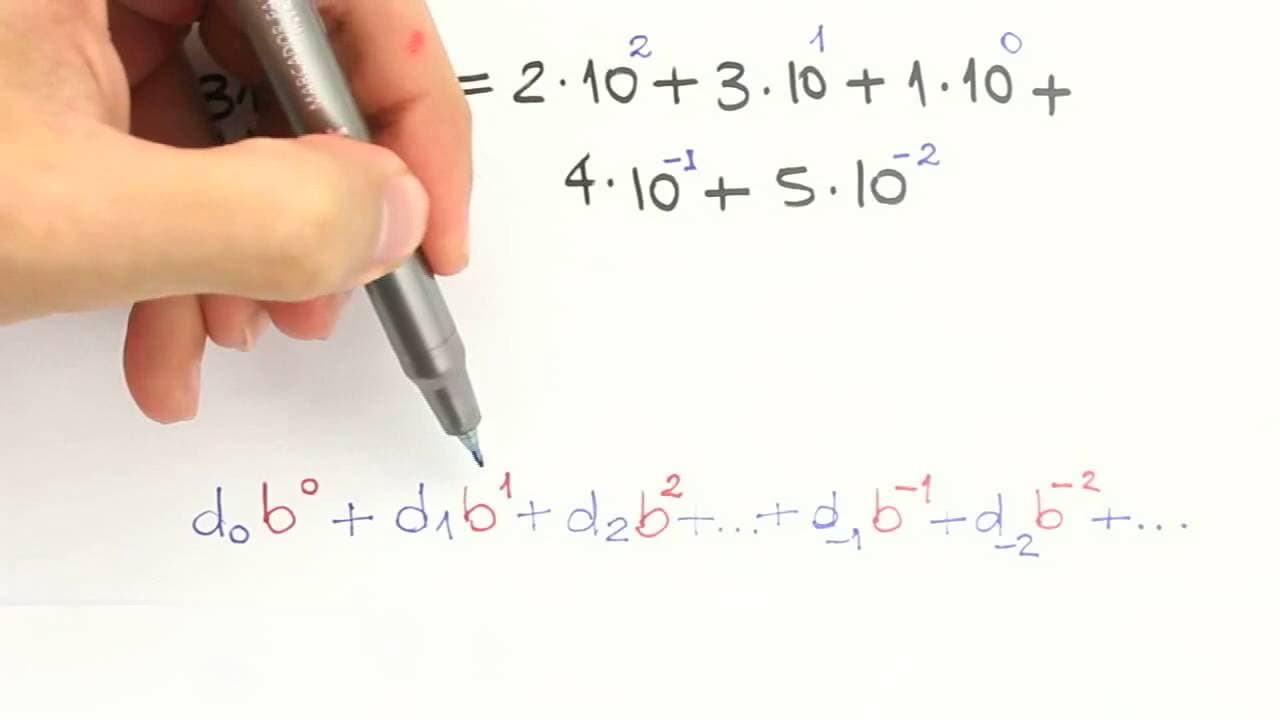 3 = 2·10² + 3·10¹ + 1·10⁰ +
4·10⁻¹ + 5·10⁻²
MARCADOR
d₀b⁰ + d₁b¹ + d₂b² + ... + d₋₁b⁻¹ + d₋₂b⁻² + ...